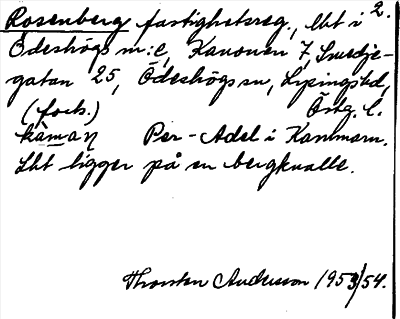 Rosenberg fastighetsreg., lht i 2.
Ödeshögs m:e, Kanonen 7, Smedje-
gatan 25, Ödeshögs sn, Lysings hd,
(forts.) Östg. l.
Per-Adel i Kantmarn.
Lht ligger på en bergknalle.
Thorsten Andersson 1953/54.